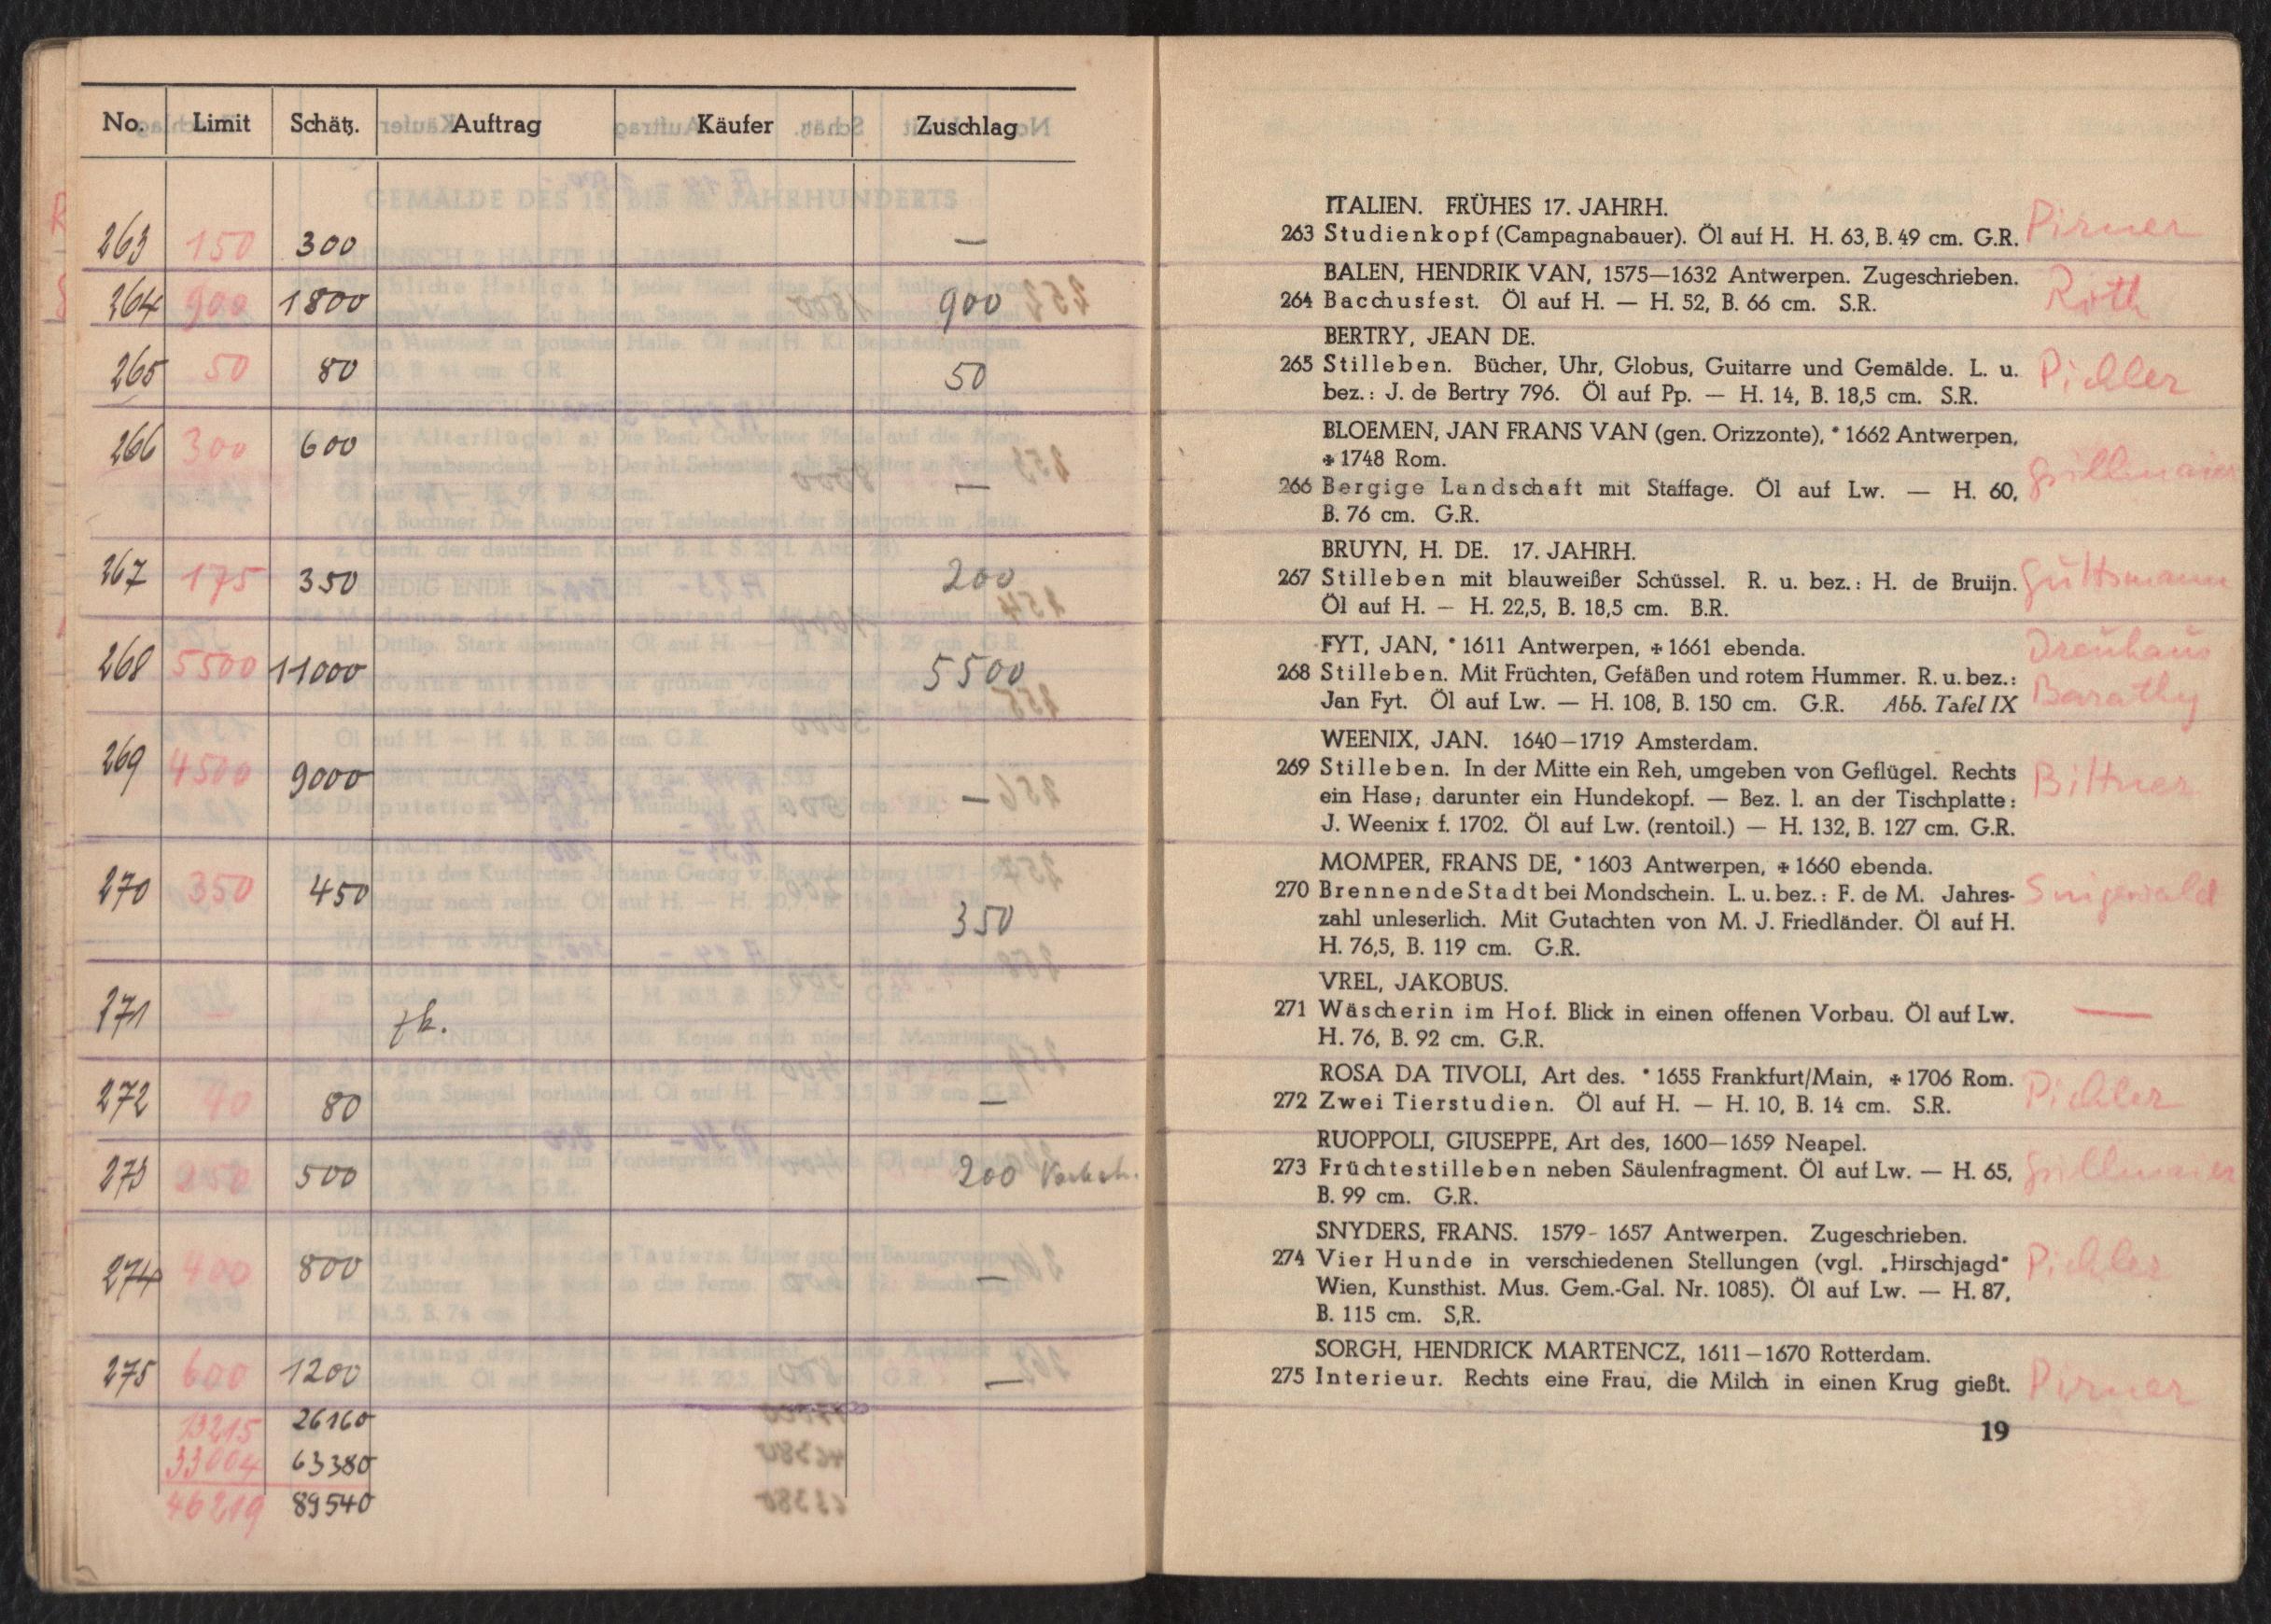 No. Limit Schätz. Auftrag Käufer Zuschlag
263 150 300 —
264 900 1800 900
265 50 80 50
266 300 600 —
267 175 350 200
268 5500 11000 5500
269 4500 9000 —
270 350 450 350
271 zk.
272 40 80 —
273 250 500 200 Vorbeh.
274 400 800 —
275 600 1200 —
13215 26160
33004 63380
46219 89540
ITALIEN. FRÜHES 17. JAHRH.
263 Studienkopf (Campagnabauer). Öl auf H. H. 63, B. 49 cm. G.R. Pirner
BALEN, HENDRIK VAN, 1575—1632 Antwerpen. Zugeschrieben.
264 Bacchusfest. Öl auf H. — H. 52, B. 66 cm. S.R. Roth
BERTRY, JEAN DE.
265 Stilleben. Bücher, Uhr, Globus, Guitarre und Gemälde. L. u. Pichler
bez.: J. de Bertry 796. Öl auf Pp. — H. 14, B. 18,5 cm. S.R.
BLOEMEN, JAN FRANS VAN (gen. Orizzonte), * 1662 Antwerpen,
✠ 1748 Rom.
266 Bergige Landschaft mit Staffage. Öl auf Lw. — H. 60, Grillmaier
B. 76 cm. G.R.
BRUYN, H. DE. 17. JAHRH.
267 Stilleben mit blauweißer Schüssel. R. u. bez.: H. de Bruijn. Guttsmann
Öl auf H. — H. 22,5, B. 18,5 cm. B.R.
FYT, JAN, * 1611 Antwerpen, ✠ 1661 ebenda. Dreuhaus
268 Stilleben. Mit Früchten, Gefäßen und rotem Hummer. R. u. bez.: Barathy
Jan Fyt. Öl auf Lw. — H. 108, B. 150 cm. G.R. Abb. Tafel IX
WEENIX, JAN. 1640—1719 Amsterdam.
269 Stilleben. In der Mitte ein Reh, umgeben von Geflügel. Rechts Bittner
ein Hase, darunter ein Hundekopf. — Bez. l. an der Tischplatte:
J. Weenix f. 1702. Öl auf Lw. (rentoil.) — H. 132, B. 127 cm. G.R.
MOMPER, FRANS DE, * 1603 Antwerpen, ✠ 1660 ebenda.
270 Brennende Stadt bei Mondschein. L. u. bez.: F. de M. Jahres-
zahl unleserlich. Mit Gutachten von M. J. Friedländer. Öl auf H.
H. 76,5, B. 119 cm. G.R.
VREL, JAKOBUS.
271 Wäscherin im Hof. Blick in einen offenen Vorbau. Öl auf Lw. —
H. 76, B. 92 cm. G.R.
ROSA DA TIVOLI, Art des. * 1655 Frankfurt/Main, ✠ 1706 Rom.
272 Zwei Tierstudien. Öl auf H. — H. 10, B. 14 cm. S.R. Pichler
RUOPPOLI, GIUSEPPE, Art des, 1600—1659 Neapel.
273 Früchtestilleben neben Säulenfragment. Öl auf Lw. — H. 65, Grillmaier
B. 99 cm. G.R.
SNYDERS, FRANS. 1579- 1657 Antwerpen. Zugeschrieben.
274 Vier Hunde in verschiedenen Stellungen (vgl. „Hirschjagd" Pichler
Wien, Kunsthist. Mus. Gem.-Gal. Nr. 1085). Öl auf Lw. — H. 87,
B. 115 cm. S,R.
SORGH, HENDRICK MARTENCZ, 1611—1670 Rotterdam.
275 Interieur. Rechts eine Frau, die Milch in einen Krug gießt. Pirner
19